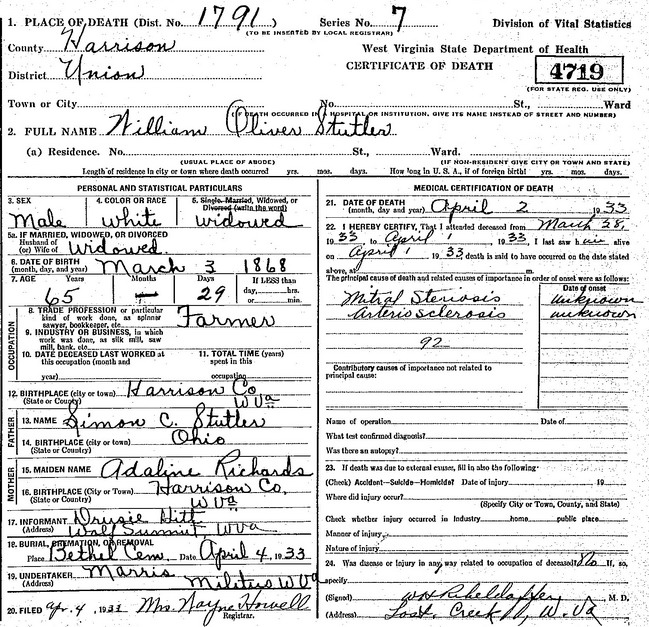 1. PLACE OF DEATH (Dist. No. 1791 ) Series No. 7 Division of Vital Statistics
(TO BE INSERTED BY LOCAL REGISTRAR)
County Harrison West Virginia State Department of Health
District Union CERTIFICATE OF DEATH 4719
(FOR STATE REG. USE ONLY)
Town or City No. St., Ward
(IF DEATH OCCURRED IN HOSPITAL OR INSTITUTION, GIVE ITS NAME INSTEAD OF STREET AND NUMBER)
2. FULL NAME William Oliver Stutler
(a) Residence. No. St., Ward.
(USUAL PLACE OF ABODE) (IF NON-RESIDENT GIVE CITY OR TOWN AND STATE)
Length of residence in city or town where death occurred yrs. mos. days. How long in U. S. A., if of foreign birth? yrs. mos. days.
PERSONAL AND STATISTICAL PARTICULARS
3. SEX 4. COLOR OR RACE 5. Single, Married, Widowed, or
Divorced (write the word)
Male white widowed
5a. IF MARRIED, WIDOWED, OR DIVORCED
Husband of
(or) Wife of Widowed
6. DATE OF BIRTH
(month, day, and year) March 3 1868
7. AGE Years Months Days If LESS than
65 29 day, hrs.
or min.
OCCUPATION
8. TRADE, PROFESSION or particular
kind of work done, as spinner
sawyer, bookkeeper, etc. Farmer
9. INDUSTRY OR BUSINESS, in which
work was done, as silk mill, saw
mill, bank, etc.
10. DATE DECEASED LAST WORKED at 11. TOTAL TIME (years)
this occupation (month and spent in this
year) occupation
12. BIRTHPLACE (city or town) Harrison Co
(State or County) W Va
FATHER
13. NAME Simon C. Stutler
14. BIRTHPLACE (city or town) Ohio
(State or Country)
MOTHER
15. MAIDEN NAME Adaline Richards
16. BIRTHPLACE (City or Town) Harrison Co,
(State or Country) W Va
17. INFORMANT Drusie Hitt
(Address) Wolf Summit W Va
18. BURIAL, CREMATION, OR REMOVAL
Place Bethel Cem. Date April 4, 1933
19. UNDERTAKER Marris
(Address) Militus W Va
20. FILED Apr. 4 1933 Mrs. Wayne Howell
Registrar.
MEDICAL CERTIFICATION OF DEATH
21. DATE OF DEATH
(month, day and year) April 2 1933
22. I HEREBY CERTIFY, That I attended deceased from March 28,
1933, to April 1 1933 I last saw him alive
on April 1 1933 death is said to have occurred on the date stated
above, at m.
The principal cause of death and related causes of importance in order of onset were as follows:
Date of onset
Mitral Steriosis unknown
Arterio sclerosis unknown
92
Contributory causes of importance not related to
principal cause:
Name of operation Date of
What test confirmed diagnosis?
Was there an autopsy?
23. If death was due to external cause, fill in also the following
(Check) Accident—Suicide—Homicide? Date of injury 19
Where did injury occur?
(Specify City or Town, County, and State)
Check whether injury occurred in Industry home public place.
Manner of injury
Nature of injury
24. Was disease or injury in any way related to occupation of deceased? No If, so,
specify
(Signed) M. D.
(Address) Lost Creek W. Va